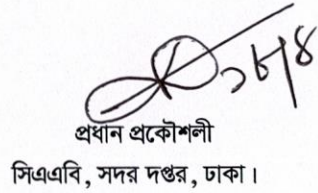 ১৮/৪
প্রধান প্রকৌশলী
সিএএবি, সদর দপ্তর, ঢাকা।